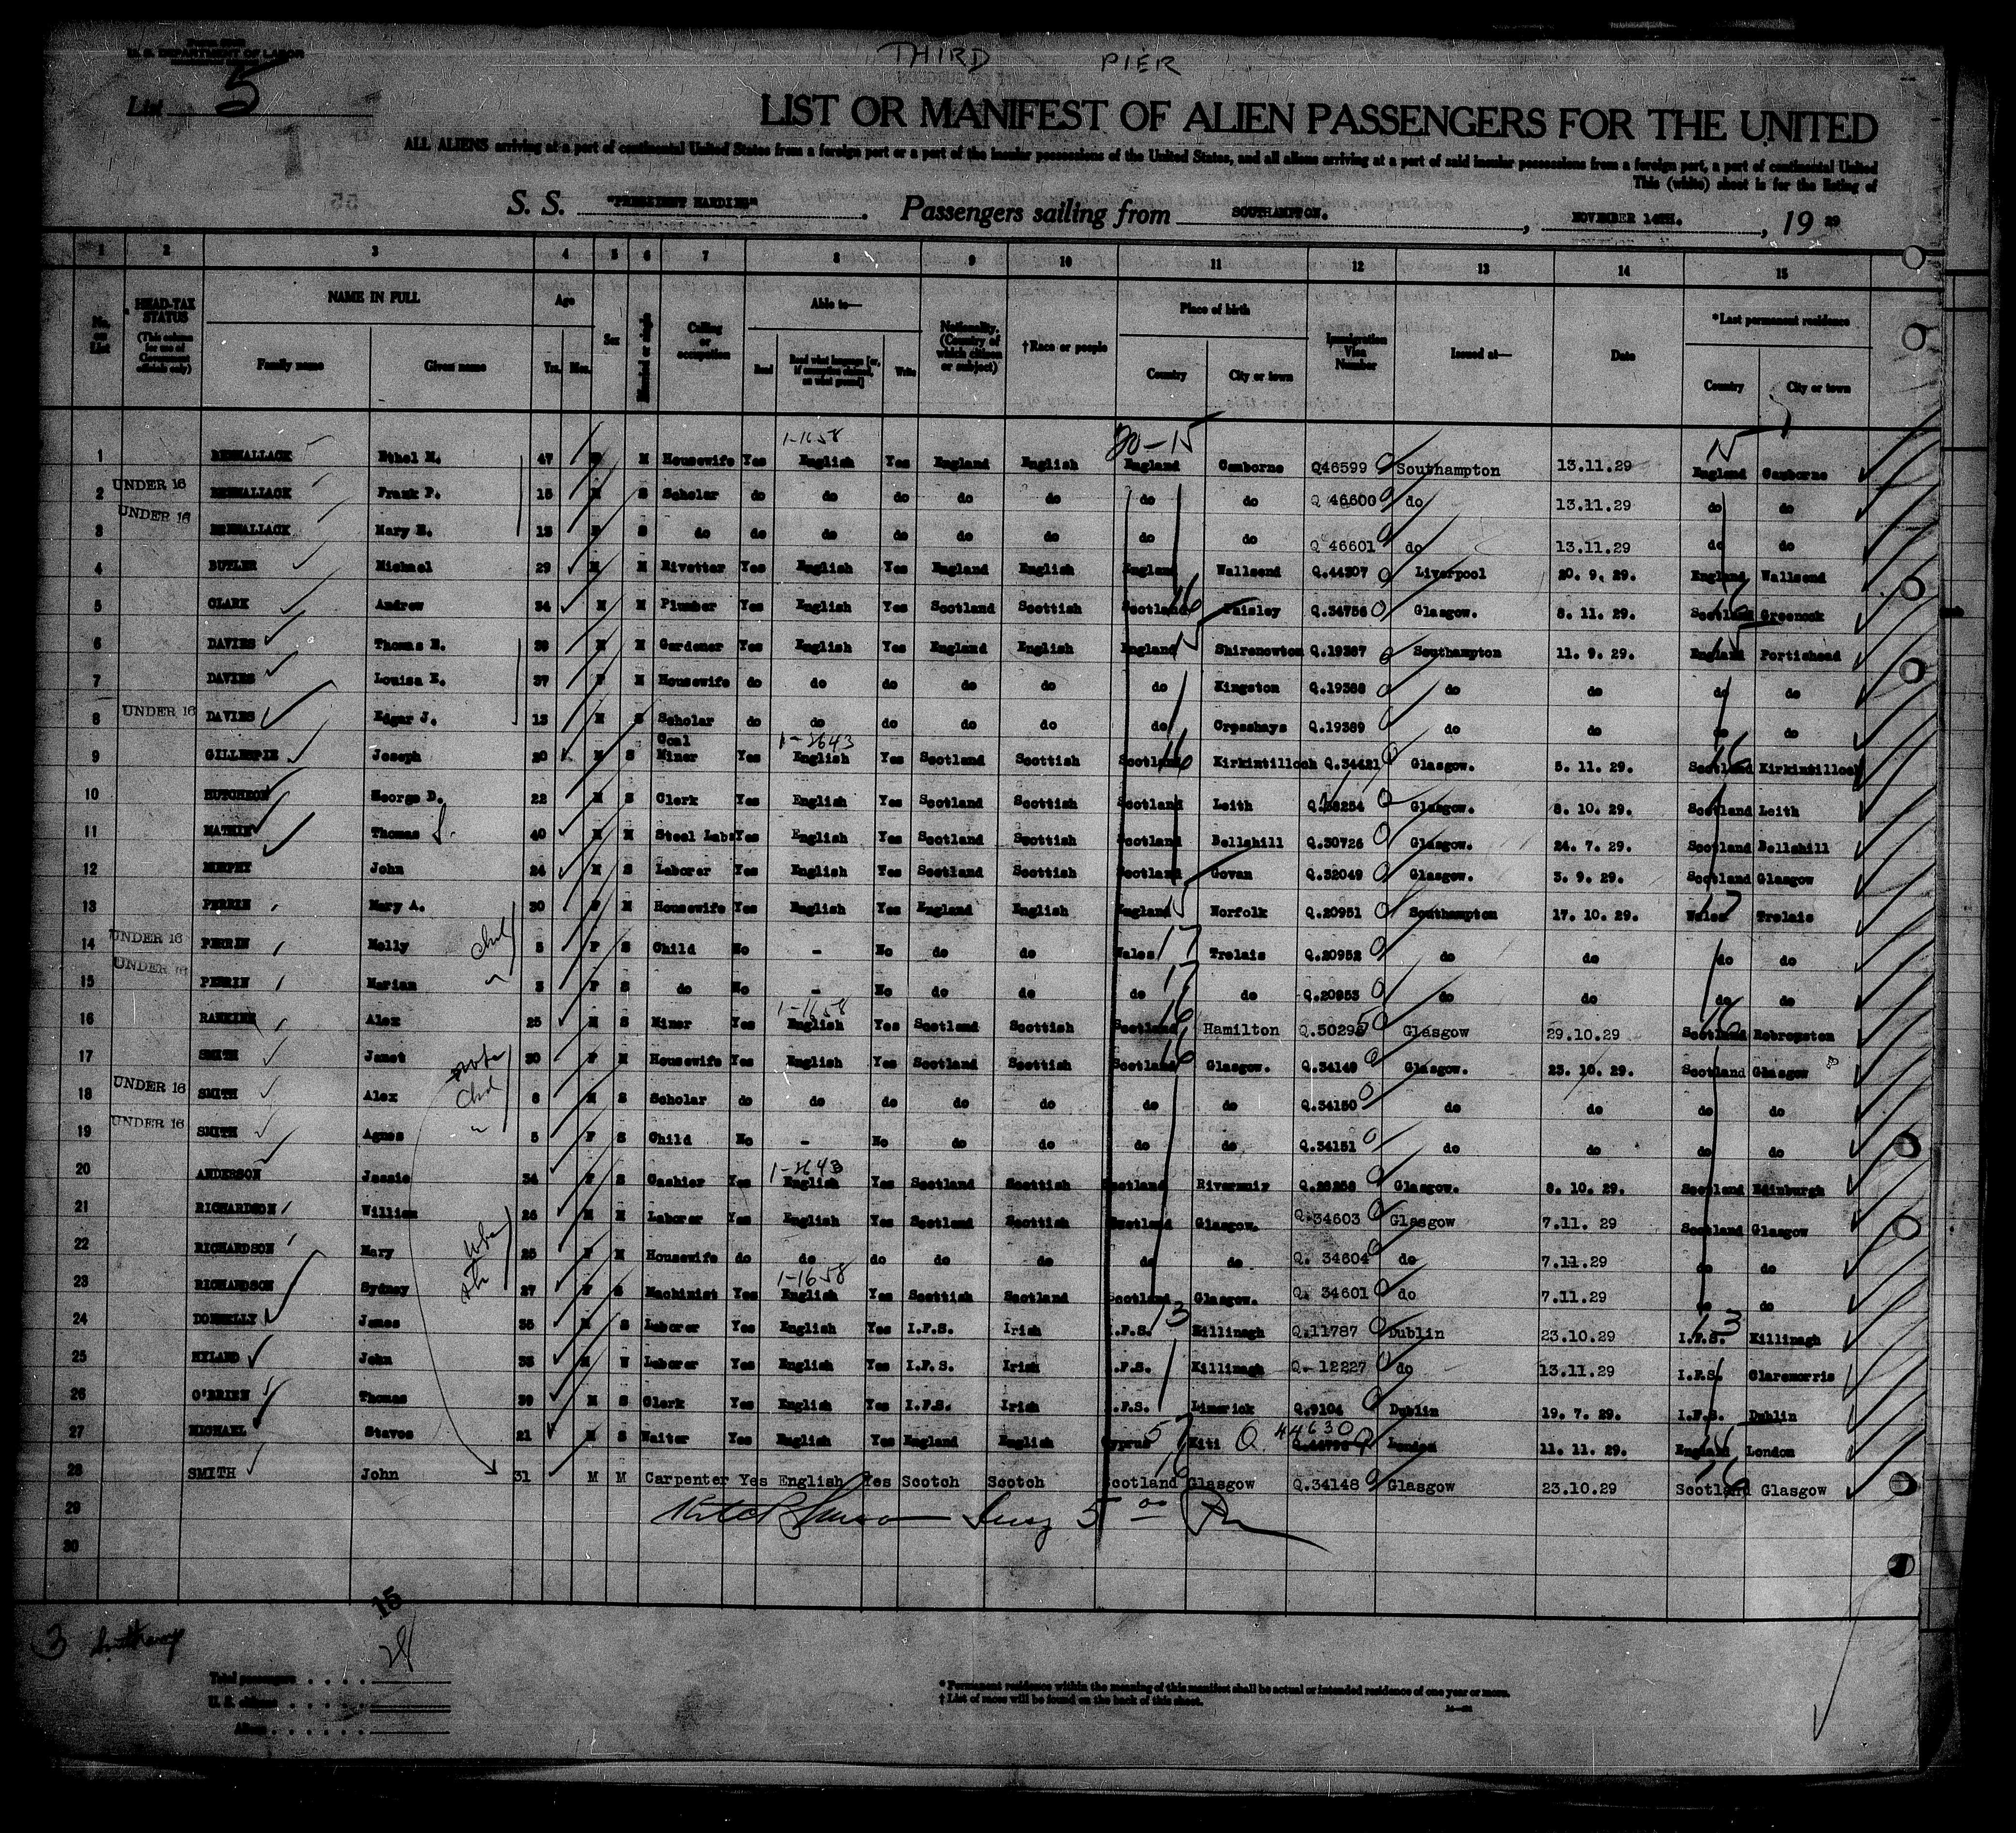 THIRD PIER
U. S. DEPARTMENT OF LABOR
List 5
LIST OR MANIFEST OF ALIEN PASSENGERS FOR THE UNITED
ALL ALIENS arriving at a port of continental United States from a foreign port or a port of the insular possessions of the United States, and all aliens arriving at a port of said insular possessions from a foreign port, a port of continental United
This (white) sheet is for the listing of
S. S. "PRESIDENT HARDING". Passengers sailing from SOUTHAMPTON. , NOVEMBER 14TH. , 19 29
1 2 3 4 5 6 7 8 9 10 11 12 13 14 15
No. on List HEAD-TAX STATUS (This column for use of Government officials only) NAME IN FULL Family name Given name Age Yrs. Mos. Sex Married or single Calling or occupation Able to— Read Read what language [or, if exemption claimed, on what ground] Write Nationality. (Country of which citizen or subject) †Race or people Place of birth Country City or town Immigration Visa Number Issued at— Date *Last permanent residence Country City or town
1-1658 20-15 15
1 Ethel M. 47 M Housewife Yes English Yes England English England Camborne Q46599 Southampton 13.11.29 England Camborne
2 UNDER 16 Frank P. 15 M S Scholar do do do do do do do Q 46600 do 13.11.29 do do
3 UNDER 16 Mary E. 13 F S do do do do do do do do Q 46601 do 13.11.29 do do
4 BUTLER Michael 29 M M Rivetter Yes English Yes England English England Wallsend Q.44307 Liverpool 20. 9. 29. England Wallsend
5 CLARK Andrew 34 M M Plumber Yes English Yes Scotland Scottish Scotland 16 Paisley Q.34756 Glasgow. 8. 11. 29. Scotland 16 Greenock
6 DAVIES Thomas H. M M Gardener Yes English Yes England English England 15 Shirenewton Q.19387 Southampton 11. 9. 29. England 15 Portishead
7 DAVIES Louisa E. 37 F M Housewife do do do do do do Kingston Q.19388 do do do do
8 UNDER 16 DAVIES Edgar J. 13 M S Scholar do do do do do do Q.19389 do do do do
1-2643
9 GILLESPIE Joseph 20 M S Coal Miner Yes English Yes Scotland Scottish Scotland 16 Kirkintilloch Q.34421 Glasgow. 5. 11. 29. Scotland 16 Kirkintilloch
10 HUTCHEON George D. 22 M S Clerk Yes English Yes Scotland Scottish Scotland Leith Glasgow. 8. 10. 29. Scotland Leith
11 Thomas 40 M M Steel Lab: Yes English Yes Scotland Scottish Scotland Bellshill Q.30726 Glasgow. 24. 7. 29. Scotland Bellshill
12 MURPHY John 24 M S Laborer Yes English Yes Scotland Scottish Scotland Govan Q.32049 Glasgow. 3. 9. 29. Scotland Glasgow
13 PERRIN Mary A. 30 F M Housewife Yes English Yes England English England 15 Norfolk Q.20951 Southampton 17. 10. 29. Wales 17 Trelais
14 UNDER 16 PERRIN Molly chd 5 F S Child No - No do do Wales 17 Trelais Q.20952 do do do do
15 UNDER 16 PERRIN Marian " 3 F S do No - No do do do 17 do Q.20953 do do do do
1-1658
16 RANKINE Alex 25 M S Miner Yes English Yes Scotland Scottish Scotland 16 Hamilton Q.50295 Glasgow 29.10.29 Scotland 16
17 SMITH Janet 30 F M Housewife Yes English Yes Scotland Scottish Scotland 16 Glasgow. Q.34149 Glasgow. 23. 10. 29. Scotland Glasgow
18 UNDER 16 SMITH Alex chd M S Scholar do do do do do do do Q.34150 do do do do
19 UNDER 16 SMITH Agnes " 5 F S Child No - No do do do do Q.34151 do do do do
1-2643
20 ANDERSON Jessie 34 F S Cashier Yes English Yes Scotland Scottish Scotland Glasgow. 8. 10. 29. Scotland Edinburgh
21 RICHARDSON William 26 M M Laborer Yes English Yes Scotland Scottish Scotland Glasgow. Q.34603 Glasgow 7.11. 29 Scotland Glasgow
22 RICHARDSON Mary 25 F M Housewife do do do do do do do Q. 34604 do 7.11.29 do do
1-1658
23 RICHARDSON Sydney 27 F S Machinist Yes English Yes Scottish Scotland Scotland Glasgow. Q. 34601 do 7.11.29 do do
24 DONNELLY James 35 M S Laborer Yes English Yes I.F.S. Irish I.F.S. 13 Killinagh Q.11787 Dublin 23.10.29 I.F.S. 13 Killinagh
25 HYLAND John M Laborer Yes English Yes I.F.S. Irish I.F.S. Killinagh Q. 12227 do 13.11.29 I.F.S. Claremorris
26 O'BRIEN Thomas 39 M S Clerk Yes English Yes I.F.S. Irish I.F.S. Limerick Q.9104 Dublin 19. 7. 29. I.F.S. Dublin
27 MICHAEL Stavos 21 M S Waiter Yes English Yes England English Cyprus 57 Kiti Q 44630 London 11. 11. 29. England London
28 SMITH John 31 M M Carpenter Yes English Yes Scotch Scotch Scotland 16 Glasgow Q.34148 Glasgow 23.10.29 Scotland 16 Glasgow
29
30
15
3
Total passengers . . . . 28
U. S. citizens . . . . .
Aliens . . . . . .
* Permanent residence within the meaning of this manifest shall be actual or intended residence of one year or more.
† List of races will be found on the back of this sheet.